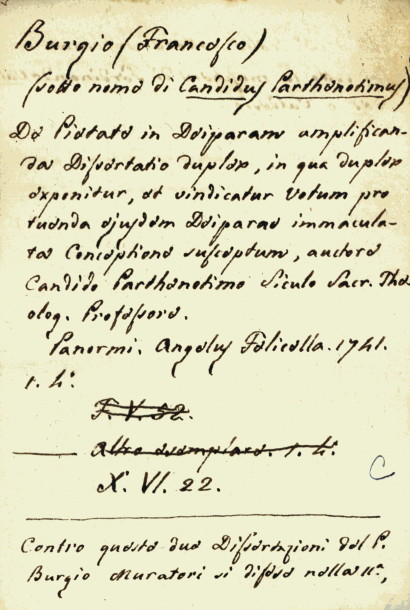 Burgio (Francesco)
(sotto nome di Candidus Parthenotimus)
De Pietate in Deiparam amplifican-
da Dissertatio duplex, in qua duplex
exponitur, et vindicatur Votum pro
tuenda ejusdem Deiparae immacula-
ta Conceptione susceptum, auctore
Candido Parthenotimo Siculo Sacr. The
olog. Professore.
Panormi. Angelus Felicella. 1741.
1. 4°.
F. V. 52.
Altro esemplare. 1. 4°.
X. VI. 22.
C
Contro queste due Dissertazioni del P.
Burgio Muratori si difese nella